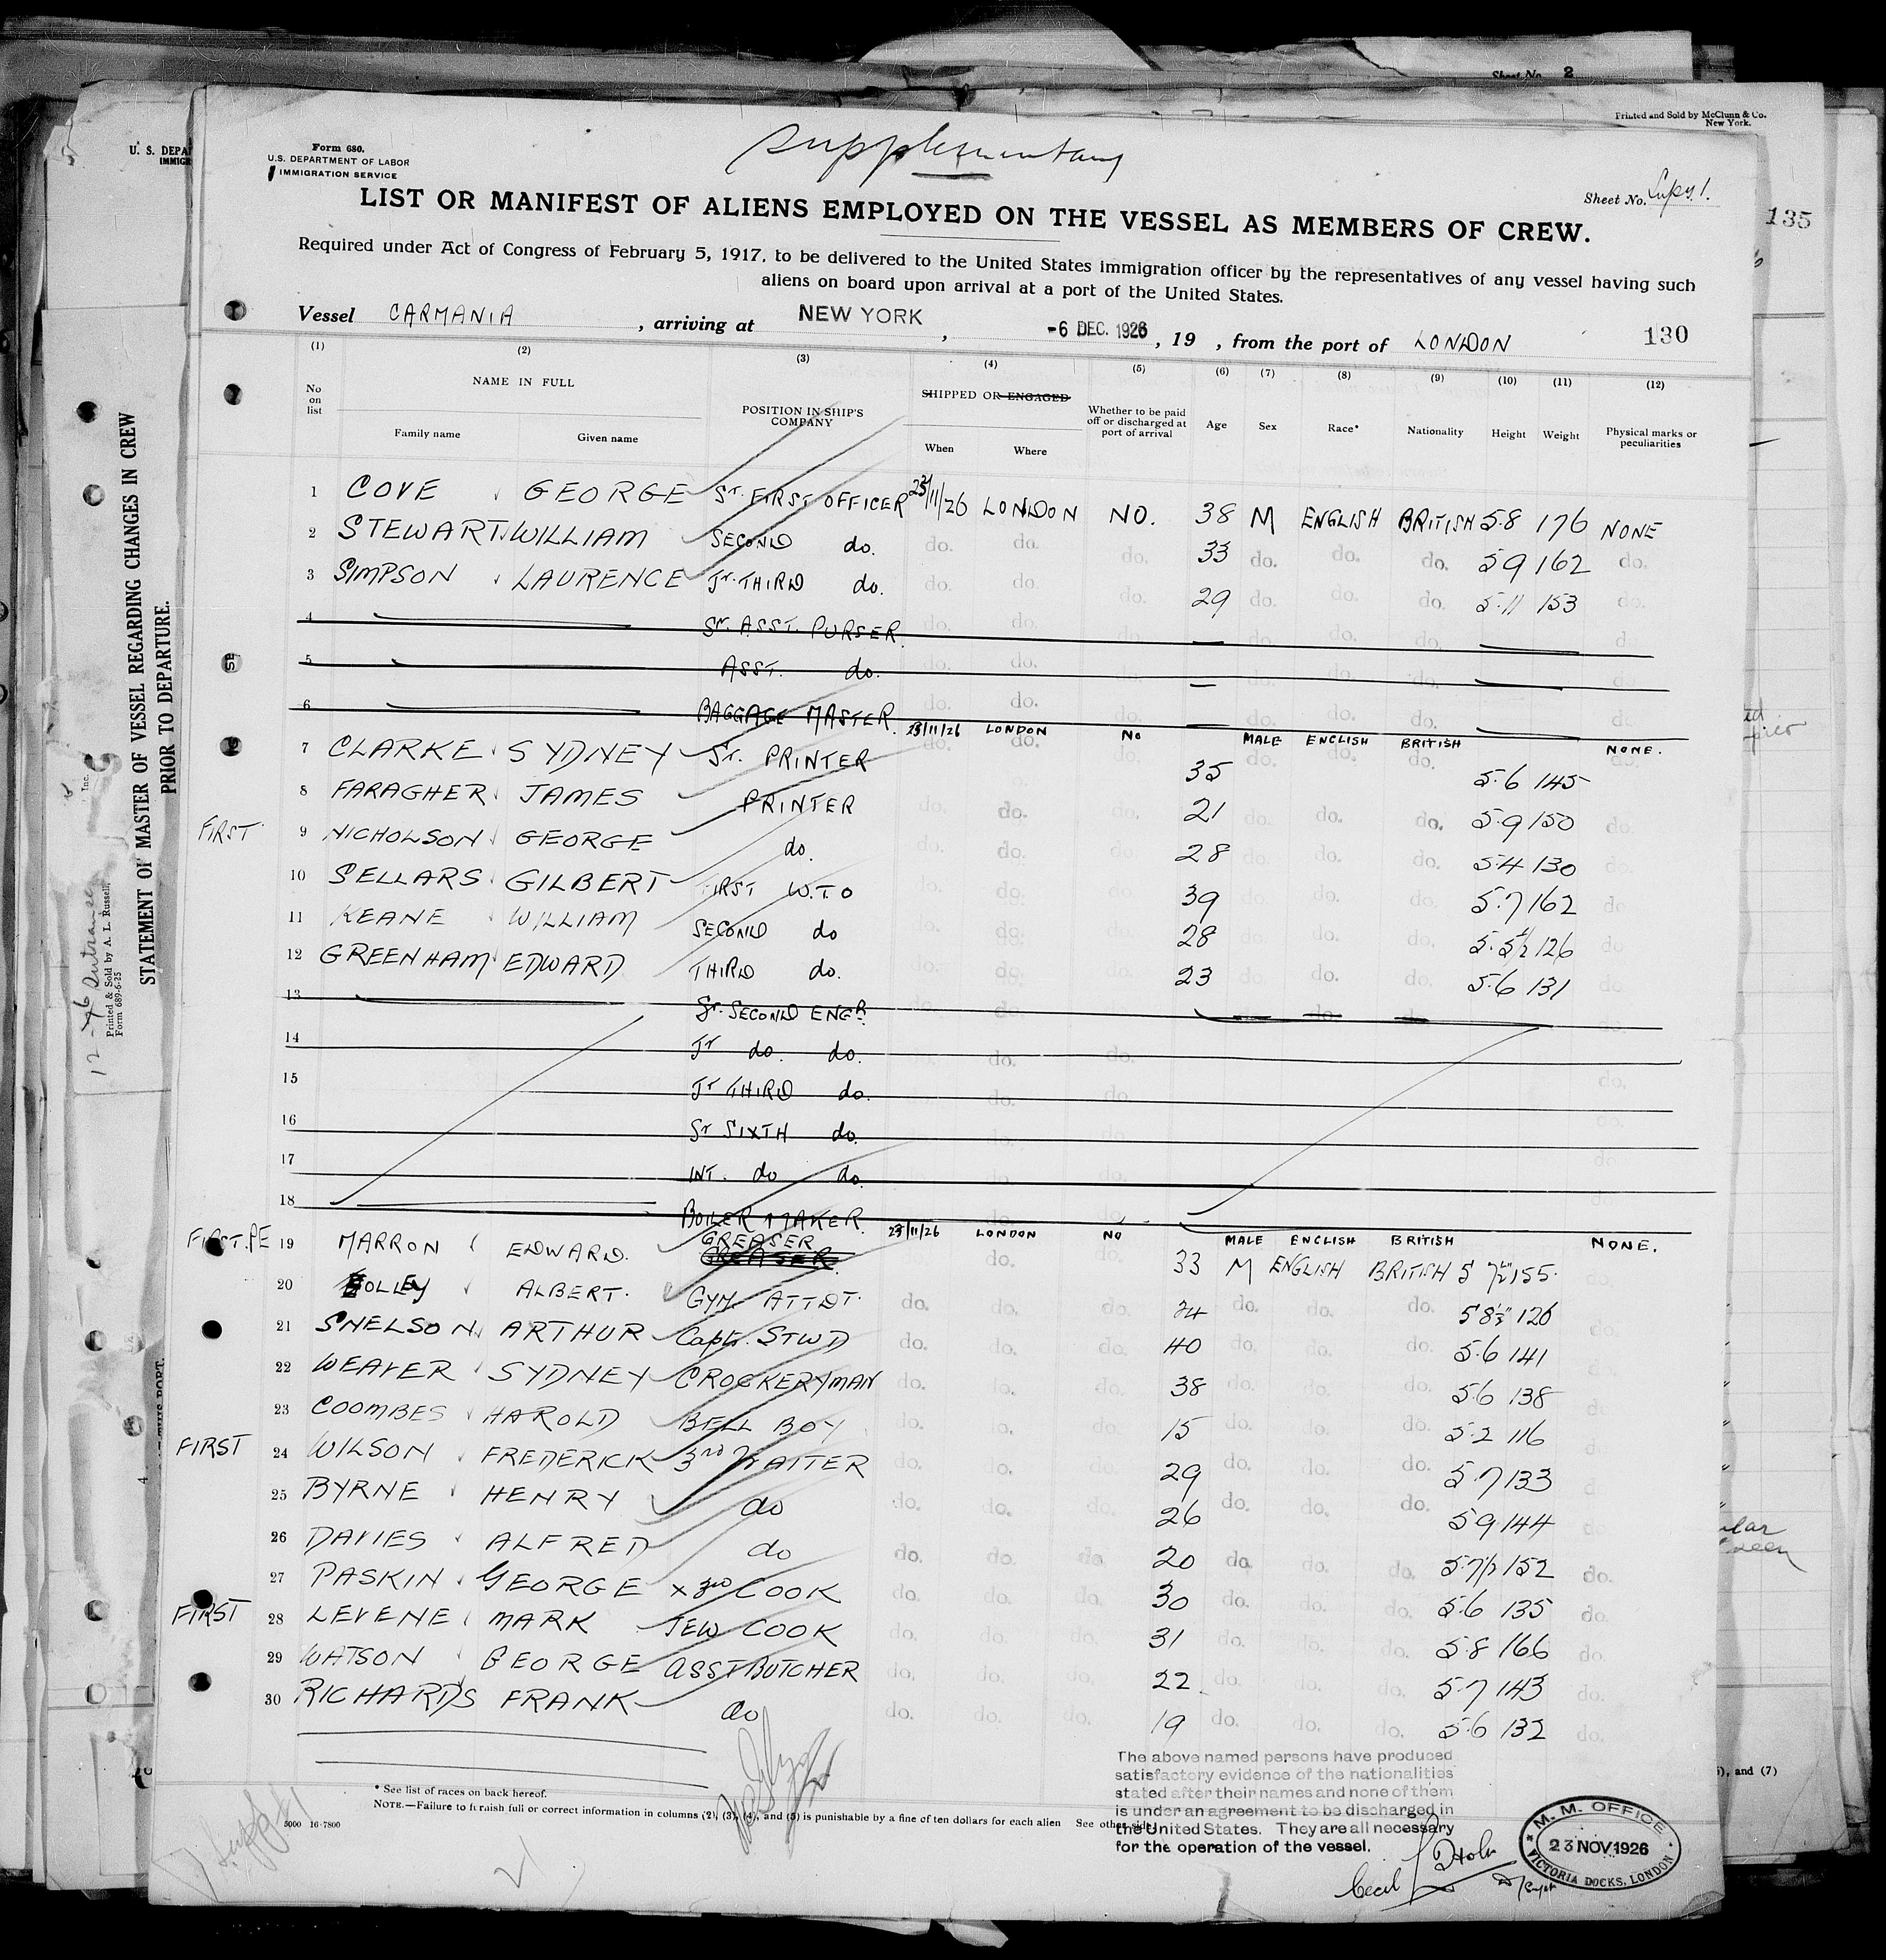 Sheet No. 2
Printed and Sold by McClunn & Co.
New York.
Supplementary
Form 680.
U.S. DEPARTMENT OF LABOR
IMMIGRATION SERVICE
U. S. DEPA
IMMIGR
Sheet No. Supy 1.
LIST OR MANIFEST OF ALIENS EMPLOYED ON THE VESSEL AS MEMBERS OF CREW.
135
Required under Act of Congress of February 5, 1917, to be delivered to the United States immigration officer by the representatives of any vessel having such
aliens on board upon arrival at a port of the United States.
Vessel CARMANIA, arriving at NEW YORK, -6 DEC. 1926, 19 , from the port of LONDON 130
(1) (2) (3) (4) (5) (6) (7) (8) (9) (10) (11) (12)
No on list NAME IN FULL Family name Given name POSITION IN SHIP'S COMPANY SHIPPED OR ENGAGED When Where Whether to be paid off or discharged at port of arrival Age Sex Race* Nationality Height Weight Physical marks or peculiarities
1 COVE GEORGE Sr. FIRST OFFICER 23/11/26 LONDON NO. 38 M ENGLISH BRITISH 5.8 176 NONE
2 STEWART WILLIAM SECOND do. do. do. do. 33 do. do. do. 5 9 162 do.
3 SIMPSON LAURENCE Jr. THIRD do. do. do. do. 29 do. do. do. 5.11 153 do.
4 Sr. ASST. PURSER do. do. do. do. do. do. d
5 ASST. do. do. do. do. do. do. do. do.
6 BAGGAGE MASTER. do. do. do. do. do. do. do.
23/11/26 LONDON NO MALE ENGLISH BRITISH NONE.
7 CLARKE SYDNEY Sr. PRINTER do. do. do. 35 do. do. do. 5.6 145 do.
8 FARAGHER JAMES PRINTER do. do. do. 21 do. do. do. 5.9 150 do.
FIRST 9 NICHOLSON GEORGE do. do. do. do 28 do. do. do. 5.4 130 do.
10 SELLARS GILBERT FIRST W.T.O do. do. do. 39 do. do. do. 5.7 162 do
11 KEANE WILLIAM SECOND do do. do. do. 28 do. do. do. 5.5½ 126 do
12 GREENHAM EDWARD THIRD do. do. do. do. 23 do. do. do. 5.6 131 do
13 Sr. SECOND ENGR. do. do do. do. do. do.
14 Jr do. do. do. do.
15 Jr THIRD do. do. do. do.
16 Sr SIXTH do. do.
17 INT. do do. do
18 BOILER MAKER. do.
23/11/26 LONDON NO MALE ENGLISH BRITISH NONE.
FIRST. PE 19 MARRON EDWARD. GREASER GREASER do. do. 33 M ENGLISH BRITISH 5 7½" 155. do.
20 ALBERT. GYM. ATTDT. do. do. do. 24 do. do. do. 5 8½" 126 do.
21 SNELSON ARTHUR Capt. STWD do. do. do. 40 do. do. do. 5.6 141 do.
22 WEAVER SYDNEY CROCKERYMAN do. do. do. 38 do. do. do. 5.6 138 do
23 COOMBES HAROLD BELL BOY do. do. do. 15 do. do. do. 5.2 116 do
FIRST 24 WILSON FREDERICK 3rd WAITER do. do. do. 29 do. do. do. 5.7 133 d
25 BYRNE HENRY do do. do. do. 26 do. do. do. 5 9 144 do.
26 DAVIES ALFRED do do. do. do. 20 do. do. do. 5.7½ 152 do.
27 PASKIN GEORGE x 3rd COOK do. do. do. 30 do. do. do. 5.6 135 do.
FIRST 28 LEVENE MARK JEW COOK do. do. do. 31 do. do. do. 5.8 166 do.
29 WATSON GEORGE ASST BUTCHER do. do. do. 22 do. do. do. 5.7 143 do.
30 RICHARDS FRANK do do. do. do. 19 do. do. do. 5.6 132 do.
* See list of races on back hereof.
NOTE.—Failure to furnish full or correct information in columns (2), (3), (4), and (5) is punishable by a fine of ten dollars for each alien See other side.
5000 16-7800
The above named persons have produced
satisfactory evidence of the nationalities
stated after their names and none of them
is under an agreement to be discharged in
the United States. They are all necessary
for the operation of the vessel.
Cecil
M. M. OFFICE
23 NOV 1926
VICTORIA DOCKS, LONDON
), and (7)
STATEMENT OF MASTER OF VESSEL REGARDING CHANGES IN CREW
PRIOR TO DEPARTURE.
Printed & Sold by A. L. Russell, Inc.
Form 689-6-25